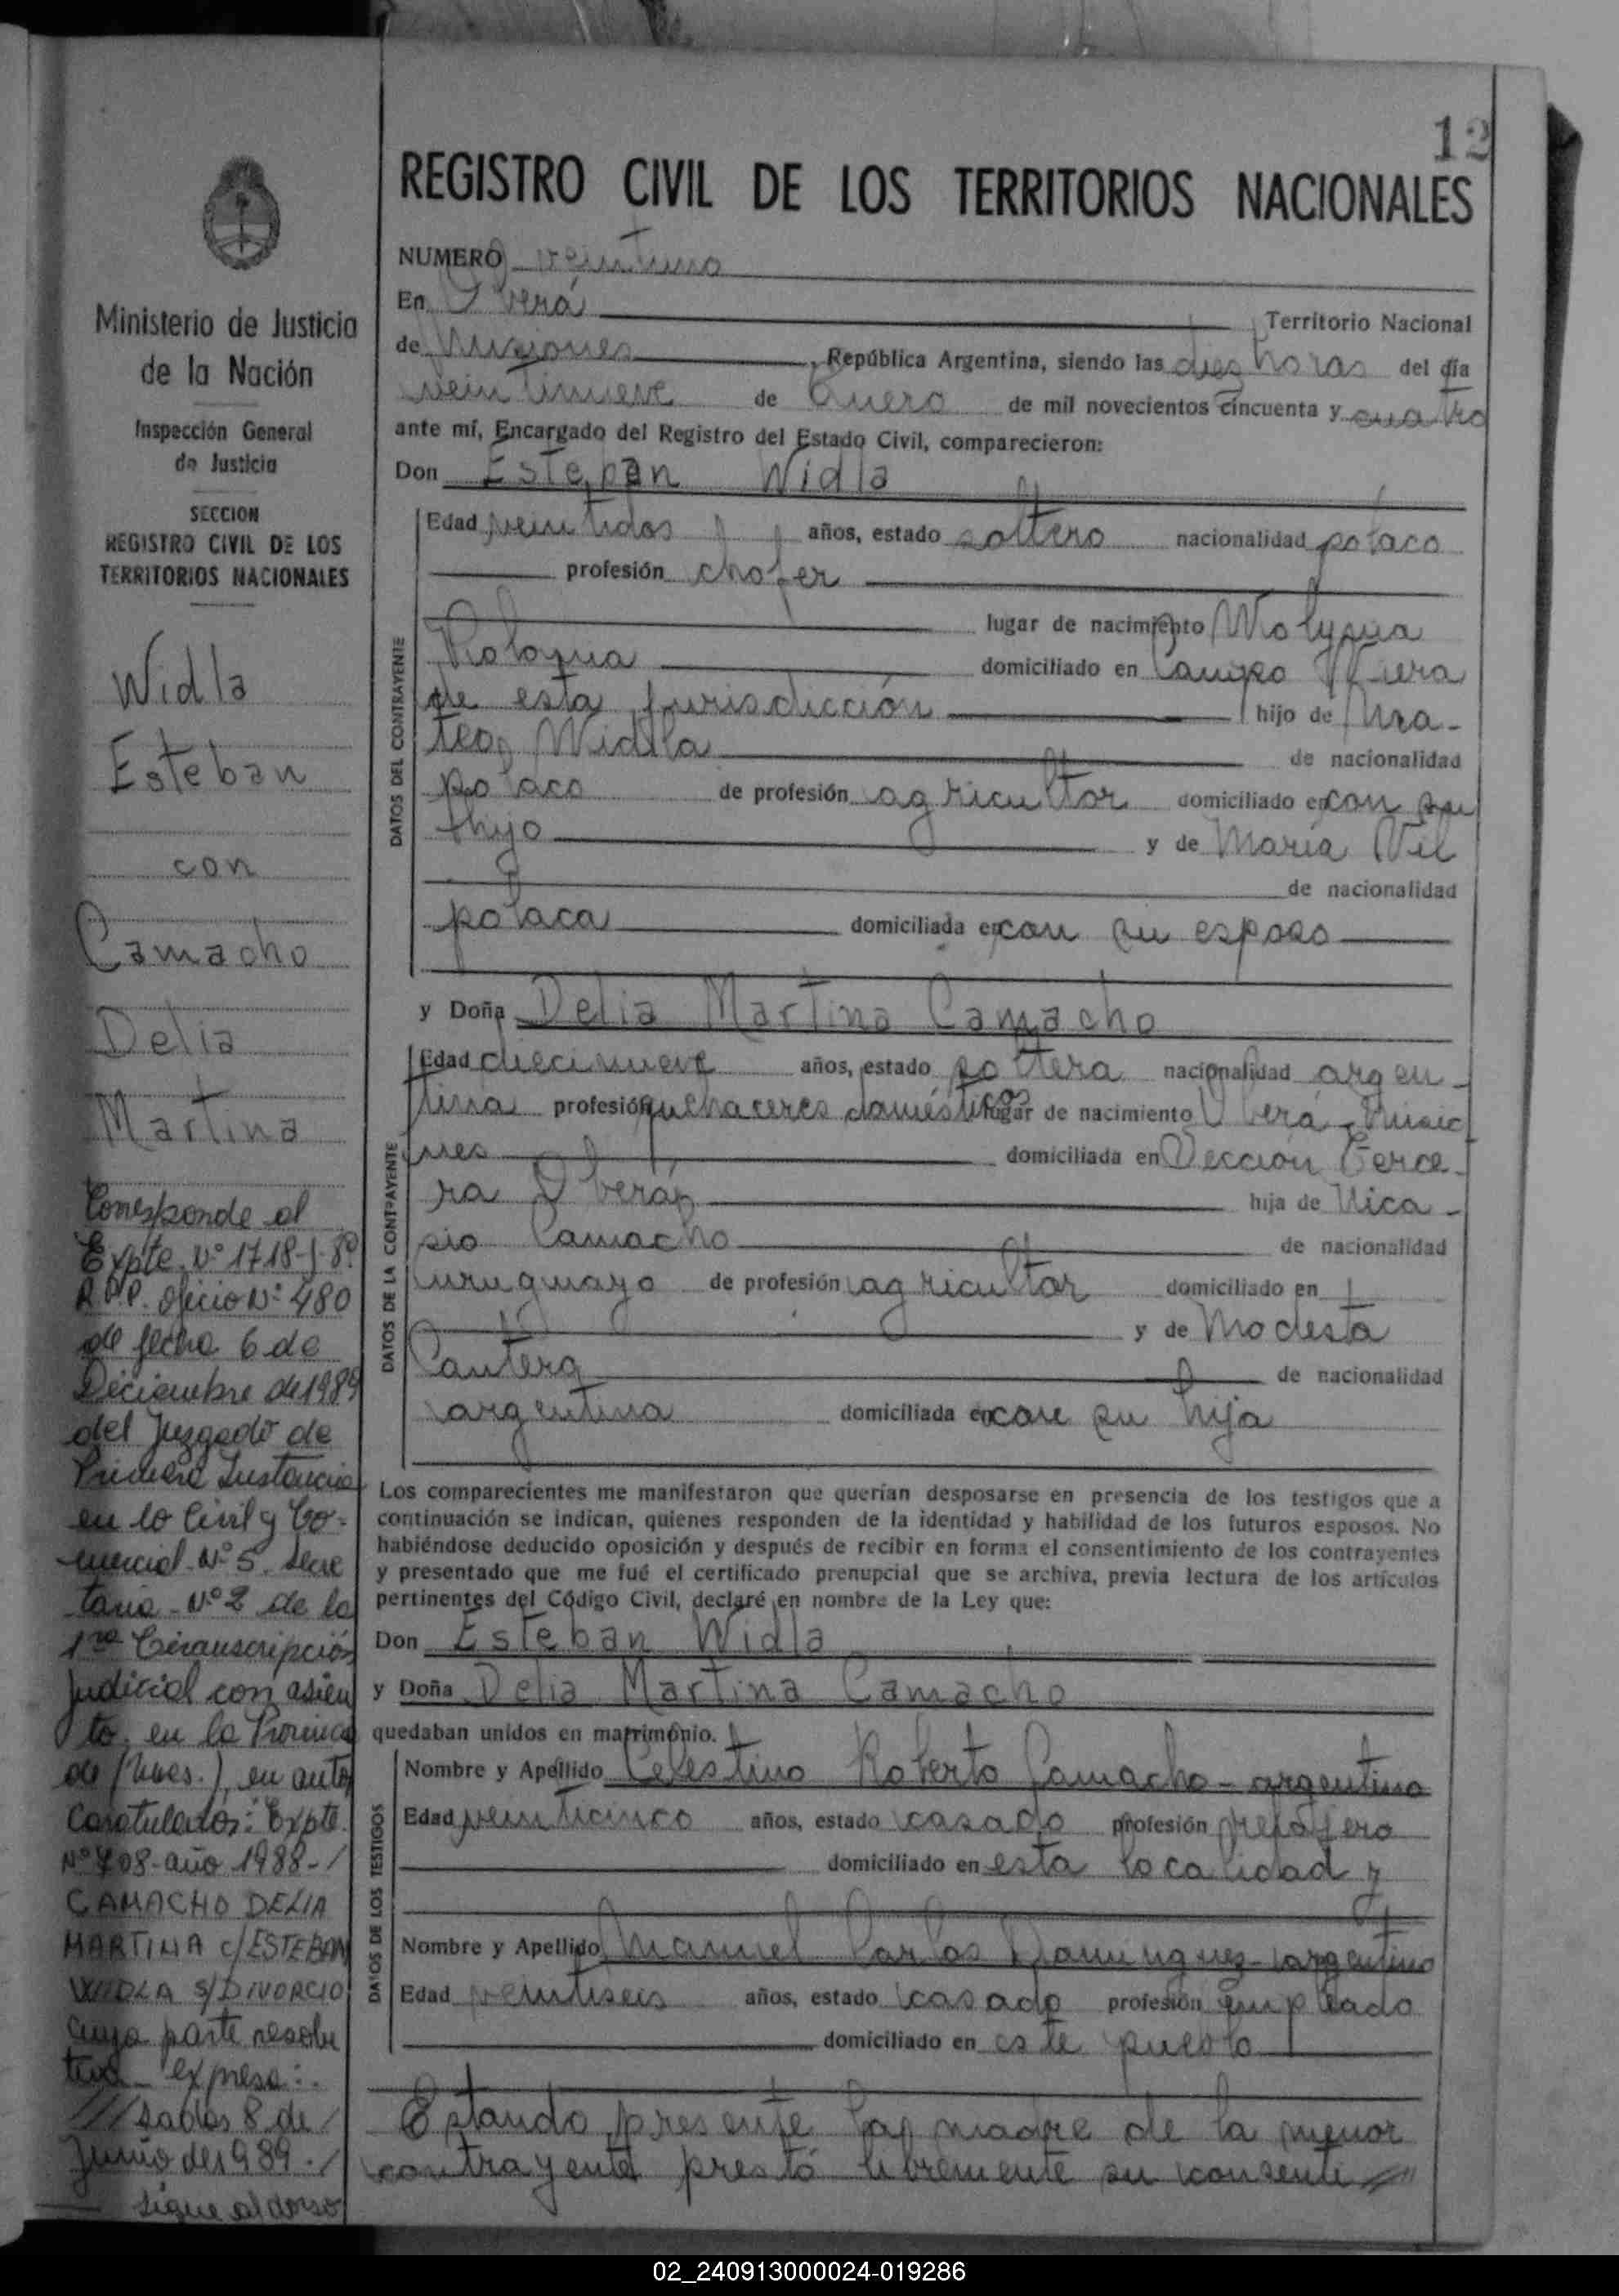 12
REGISTRO CIVIL DE LOS TERRITORIOS NACIONALES
Ministerio de Justicia
de la Nación
Inspección General
de Justicia
SECCION
REGISTRO CIVIL DE LOS
TERRITORIOS NACIONALES
Widla
Esteban
con
Camacho
Delia
Martina
Corresponde al
Expte. Nº 1718-J-8º
R.P.P. Oficio Nº 480
de fecha 6 de
Diciembre de 1989
del Juzgado de
Primera Instancia
en lo Civil y Co-
mercial Nº 5. Secre
taria Nº 2 de la
1ra Circunscripción
Judicial con asien
to, en la Provincia
de (Mnes.), en autos
Caratulados: Expte.
Nº 708-año 1988-/
CAMACHO DELIA
MARTINA c/ESTEBAN
WIDLA s/DIVORCIO
cuya parte resolu
tiva expresa:
///sadas 8 de/
Junio de 1989./
sigue al dorso
NUMERO veintiuno
En Oberá Territorio Nacional
de Misiones, República Argentina, siendo las diez horas del día
veintinueve de Enero de mil novecientos cincuenta y cuatro
ante mí, Encargado del Registro del Estado Civil, comparecieron:
Don Esteban Widla
DATOS DEL CONTRAYENTE
Edad veintidos años, estado soltero nacionalidad polaco
profesión chofer
lugar de nacimiento
Polonia domiciliado en Campo Viera
de esta jurisdicción hijo de Ma-
teo Widla de nacionalidad
polaco de profesión agricultor domiciliado en con su
hijo y de María Vil
de nacionalidad
polaca domiciliada en con su esposo
y Doña Delia Martina Camacho
DATOS DE LA CONTRAYENTE
Edad diecinueve años, estado soltera nacionalidad argen-
tina profesión quehaceres domésticos lugar de nacimiento Oberá, Misio
nes domiciliada en Sección Terce-
ra Oberá hija de Nica-
sio Camacho de nacionalidad
uruguayo de profesión agricultor domiciliado en
y de Modesta
Cantera de nacionalidad
argentina domiciliada en con su hija
Los comparecientes me manifestaron que querían desposarse en presencia de los testigos que a
continuación se indican, quienes responden de la identidad y habilidad de los futuros esposos. No
habiéndose deducido oposición y después de recibir en forma el consentimiento de los contrayentes
y presentado que me fué el certificado prenupcial que se archiva, previa lectura de los artículos
pertinentes del Código Civil, declaré en nombre de la Ley que:
Don Esteban Widla
y Doña Delia Martina Camacho
quedaban unidos en matrimonio.
DATOS DE LOS TESTIGOS
Nombre y Apellido Celestino Roberto Camacho - argentino
Edad veinticinco años, estado casado profesión
domiciliado en esta localidad y
Nombre y Apellido Manuel Carlos Dominguez - argentino
Edad veintiseis años, estado casado profesión empleado
domiciliado en este pueblo
Estando presente la madre de la menor
contrayente prestó libremente su consenti //
02_240913000024-019286